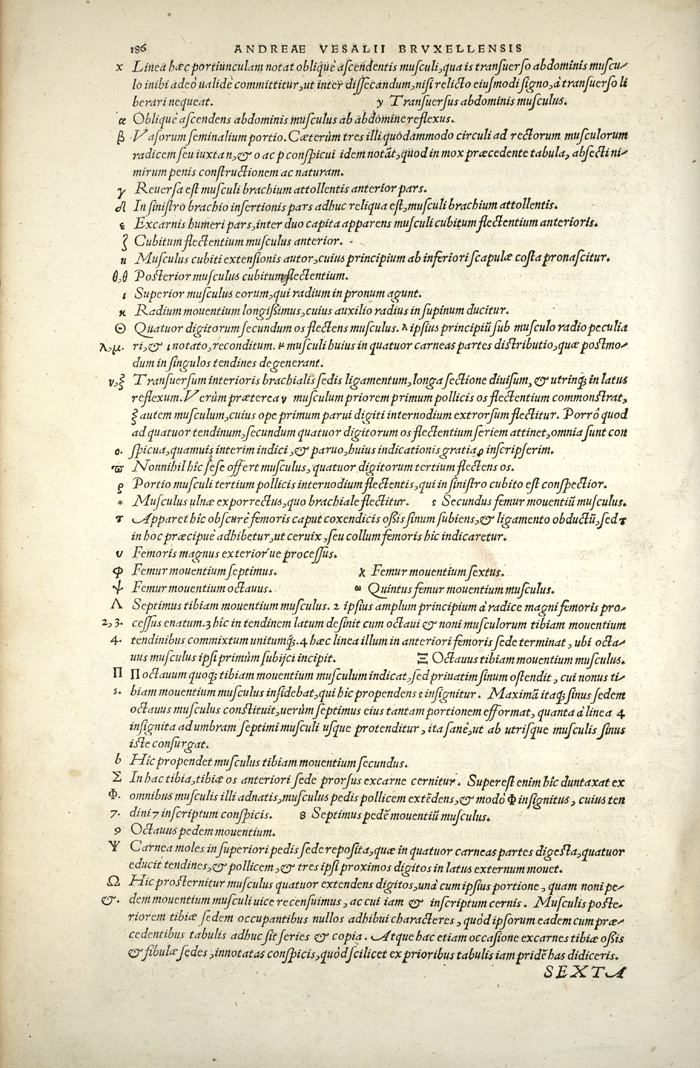 186 ANDREAE VESALII BRVXELLENSIS
x Linea hæc portiunculam notat obliquè ascendentis musculi, qua is transuerso abdominis muscu-
lo inibi adeò ualidè committitur, ut inter dissecandum, nisi relicto eiusmodi signo, à transuerso li
berari nequeat. y Transuersus abdominis musculus.
α Obliquè ascendens abdominis musculus ab abdomine reflexus.
β Vasorum seminalium portio. Cæterùm tres illi quodammodo circuli ad rectorum musculorum
radicem seu iuxta n, & o ac p conspicui idem notãt, quod in mox præcedente tabula, absecti ni-
mirum penis constructionem ac naturam.
γ Reuersa est musculi brachium attollentis anterior pars.
δ In sinistro brachio insertionis pars adhuc reliqua est, musculi brachium attollentis.
ε Excarnis humeri pars, inter duo capita apparens musculi cubitum flectentium anterioris.
ζ Cubitum flectentium musculus anterior.
η Musculus cubiti extensionis autor, cuius principium ab inferiori scapulæ costa pronascitur.
θ,θ Posterior musculus cubitum flectentium.
ι Superior musculus eorum, qui radium in pronum agunt.
κ Radium mouentium longißimus, cuius auxilio radius in supinum ducitur.
Θ Quatuor digitorum secundum os flectens musculus. λ ipsius principiũ sub musculo radio peculia
λ,μ. ri, & ι notato, reconditum. μ musculi huius in quatuor carneas partes distributio, quæ postmo-
dum in singulos tendines degenerant.
ν,ξ Transuersum interioris brachialis sedis ligamentum, longa sectione diuisum, & utrinq; in latus
reflexum. Verùm præterea ν musculum priorem primum pollicis os flectentium commonstrat,
ξ autem musculum, cuius ope primum parui digiti internodium extrorsum flectitur. Porrò quod
ad quatuor tendinum, secundum quatuor digitorum os flectentium seriem attinet, omnia sunt con
ο. spicua, quamuis interim indici, & paruo, huius indicationis gratia, ο inscripserim.
ϖ Nonnihil hic sese offert musculus, quatuor digitorum tertium flectens os.
ρ Portio musculi tertium pollicis internodium flectentis, qui in sinistro cubito est conspectior.
* Musculus ulnæ exporrectus, quo brachiale flectitur. ς Secundus femur mouentiũ musculus.
τ Apparet hic obscurè femoris caput coxendicis oßis sinum subiens, & ligamento obductũ, sed τ
in hoc præcipuè adhibetur, ut ceruix, seu collum femoris hic indicaretur.
υ Femoris magnus exteriorue processus.
φ Femur mouentium septimus. χ Femur mouentium sextus.
ψ Femur mouentium octauus. ω Quintus femur mouentium musculus.
Λ Septimus tibiam mouentium musculus. 2 ipsius amplum principium à radice magni femoris pro-
2, 3. cessus enatum. 3 hic in tendinem latum desinit cum octaui & noni musculorum tibiam mouentium
4. tendinibus commixtum unitumq́;. 4 hæc linea illum in anteriori femoris sede terminat, ubi octa-
uus musculus ipsi primùm subijci incipit. Ξ Octauus tibiam mouentium musculus.
Π Π octauum quoq; tibiam mouentium musculum indicat, sed priuatim sinum ostendit, cui nonus ti-
5. biam mouentium musculus insidebat, qui hic propendens 5 insignitur. Maximã itaq; sinus sedem
octauus musculus constituit, uerùm septimus eius tantam portionem efformat, quanta à linea 4
insignita ad umbram septimi musculi usque protenditur, ita sanè, ut ab utrisque musculis sinus
iste consurgat.
6 Hic propendet musculus tibiam mouentium secundus.
Σ In hac tibia, tibiæ os anteriori sede prorsus excarne cernitur. Superest enim hic duntaxat ex
Φ. omnibus musculis illi adnatis, musculus pedis pollicem extẽdens, & modò Φ insignitus, cuius ten
7. dini 7 inscriptum conspicis. 8 Septimus pedẽ mouentiũ musculus.
9 Octauus pedem mouentium.
Ψ Carnea moles in superiori pedis sede reposita, quæ in quatuor carneas partes digesta, quatuor
educit tendines, & pollicem, & tres ipsi proximos digitos in latus externum mouet.
Ω Hic prosternitur musculus quatuor extendens digitos, unà cum ipsius portione, quam noni pe-
&. dem mouentium musculi uice recensuimus, ac cui iam & inscriptum cernis. Musculis poste-
riorem tibiæ sedem occupantibus nullos adhibui characteres, quòd ipsorum eadem cum præ-
cedentibus tabulis adhuc sit series & copia. Atque hac etiam occasione excarnes tibiæ oßis
& fibulæ sedes, innotatas conspicis, quòd scilicet ex prioribus tabulis iam pridẽ has didiceris.
SEXTA